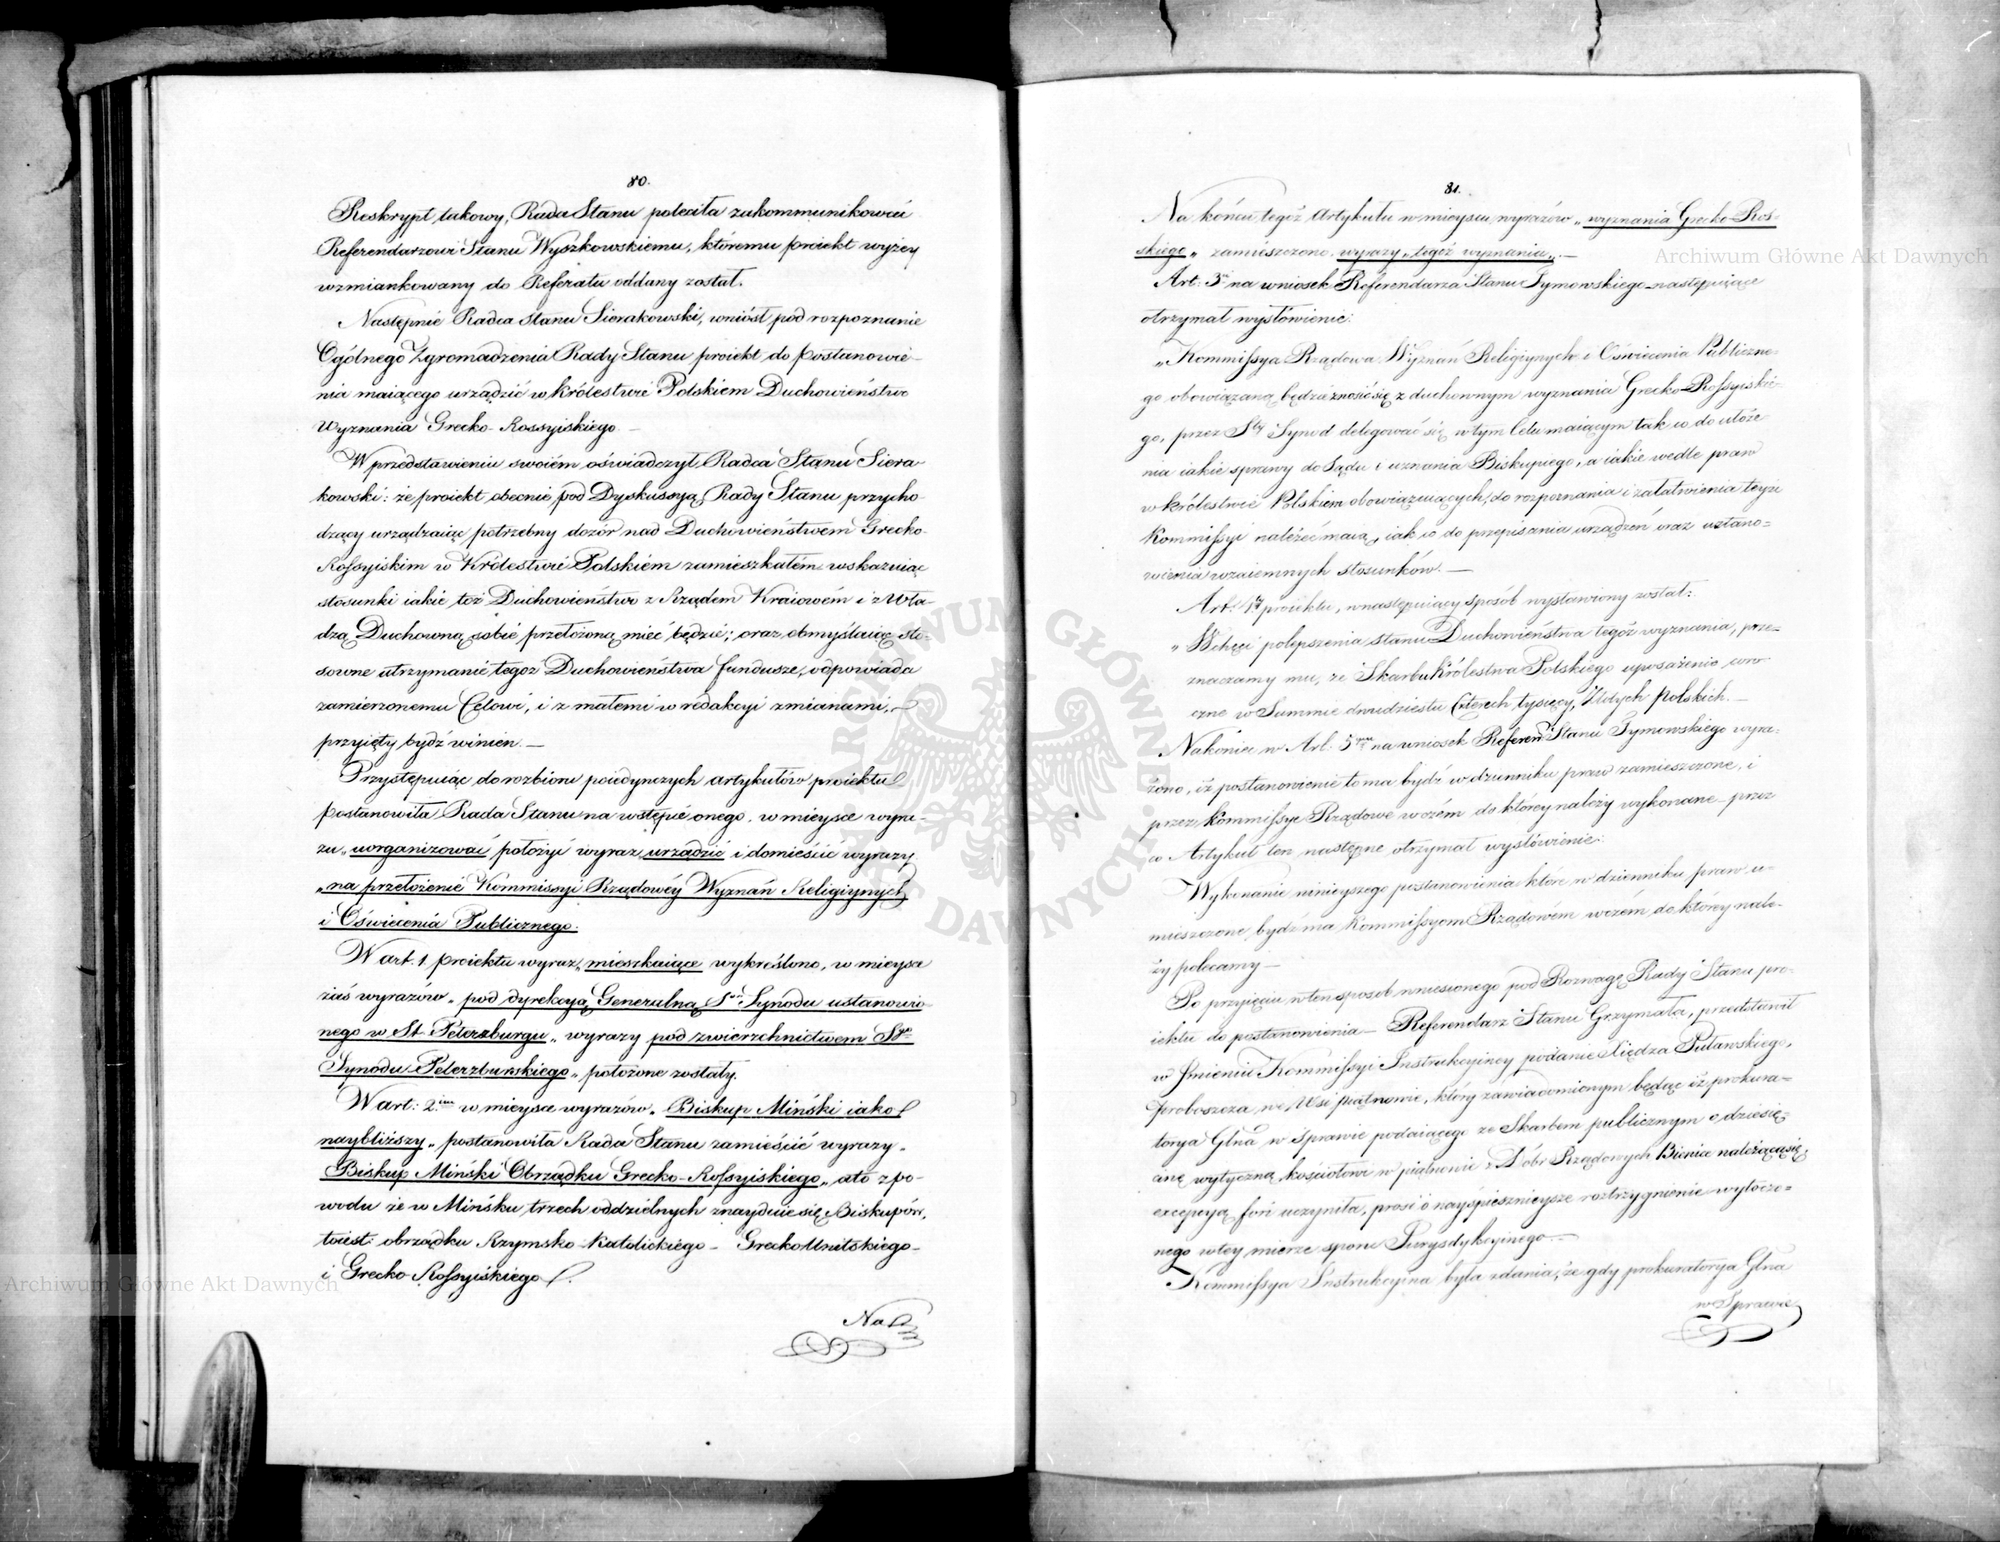 80.
Reskrypt takowy, Rada Stanu poleciła zakommunikować
Referendarzowi Stanu Wyszkowskiemu, któremu proiekt wyżey
wzmiankowany do Referatu oddany został.
Następnie Radca Stanu Sierakowski, wniósł pod rozpoznanie
Ogólnego Zgromadzenia Rady Stanu proiekt do postanowie-
nia maiącego urządzić w Królestwie Polskiem Duchowieństwo
Wyznania Grecko-Rossyiskiego. —
W przedstawieniu swoiém oświadczył, Radca Stanu Siera-
kowski: że proiekt obecnie pod Dyskussyą Rady Stanu przycho-
dzący urządzaiąc potrzebny dozór nad Duchowieństwem Grecko-
Rossyiskim w Królestwie Polskiém zamieszkałém wskazuiąc
stosunki iakie toż Duchowieństwo z Rządem Kraiowém i z Wła-
dzą Duchowną sobie przełożoną mieć będzie; oraz obmyślaiąc sto-
sowne utrzymanie tegoż Duchowieństwa fundusze, odpowiada
zamierzonemu Celowi, i z małemi w redakcyi zmianami,
przyięty bydź winien. —
Przystępuiąc do rozbioru poiedynczych artykułów proiektu
postanowiła Rada Stanu na wstępie onego, w mieysce wyra-
zu „uorganizować położyć wyraz „urządzić i domieścić wyrazy
„na przełożenie Kommissyi Rządowéy Wyznań Religiynych
i Oświecenia Publicznego.
W art. 1 proiektu wyraz „mieszkaiące wykreślono, w mieysce
zaś wyrazów „pod dyrekcyą Generalną Sgo Synodu ustanowio-
nego w St. Petersburgu„ wyrazy pod zwierzchnictwem Sgo
Synodu Petersburskiego„ położone zostały.
W art: 2im w mieysce wyrazów „Biskup Miński iako
naybliższy„ postanowiła Rada Stanu zamieścić wyrazy „
Biskup Miński Obrządku Grecko-Rossyiskiego„ a to z po-
wodu że w Mińsku trzech oddzielnych znayduie się Biskupów,
toiest: obrządku Rzymsko Katolickiego — Grecko Unitskiego —
i Grecko Rossyiskiego.
Na
81.
Na końcu tegoż Artykułu w mieyscu wyrazów „wyznania Grecko-Ros-
skiego„ zamieszczono wyrazy „tegoż wyznania„. —
Art: 3ci na wniosek Referendarza Stanu Tymowskiego następuiące
otrzymał wysłowienie:
„Kommissya Rządowa Wyznań Religiynych i Oświecenia Publiczne-
go obowiązaną będzie znosić się z duchownym wyznania Grecko-Rossyiskie-
go, przez Sty Synod delegować się w tym Celu maiącym tak co do ułoże
nia iakie sprawy do Sądu i uznania Biskupiego, a iakie wedle praw
w Królestwie Polskiem obowiązuiących, do rozpoznania i załatwienia teyże
Kommissyi należeć maią, iak co do przepisania urządzeń oraz ustano-
wienia wzaiemnych stosunków. —
Art: 4ty proiektu, w następuiący sposób wysławiony został:
„W chęci polepszenia stanu Duchowieństwa tegoż wyznania, prze-
znaczamy mu, ze Skarbu Królestwa Polskiego uposażenie
czne w Summie dwudziestu Czterech tysięcy, Złotych polskich. —
Nakoniec w Art. 5tym na wniosek Referend Stanu Tymowskiego wyra-
żono, iż postanowienie to ma bydź w dzienniku praw zamieszczone, i
przez Kommissye Rządowe w czém do któréy należy wykonane przez
co Artykuł ten następne otrzymał wysłowienie:
Wykonanie ninieyszego postanowienia które w dzienniku praw u-
mieszczone bydź ma Kommissyom Rządowém w czém do któréy nale-
ży polecamy —
Po przyięciu w ten sposób wniesionego pod Rozwagę Rady Stanu pro-
iektu do postanowienia — Referendarz Stanu Grzymała, przedstawił
w Imieniu Kommissyi Instrukcyiney podanie Xiędza Puławskiego,
Proboszcza we Wsi piątnowie, który zawiadomionym będąc iż prokura-
torya Głna w Sprawie podaiącego ze Skarbem publicznym o dziesię-
cinę wytyczną kościołowi w piątnowie z Dóbr Rządowych Bienice należącą się,
excepcyą fori uczyniła, prosi o nayśpiesznieysze roztrzygnienie wytoczo-
nego w tey mierze sporu Jurysdykcyinego. —
Kommissya Instrukcyina była zdania, że gdy prokuratorya Głna
w Sprawie
Archiwum Główne Akt Dawnych
Archiwum Główne Akt Dawnych
ARCHIWUM GŁÓWNE AKT DAWNYCH